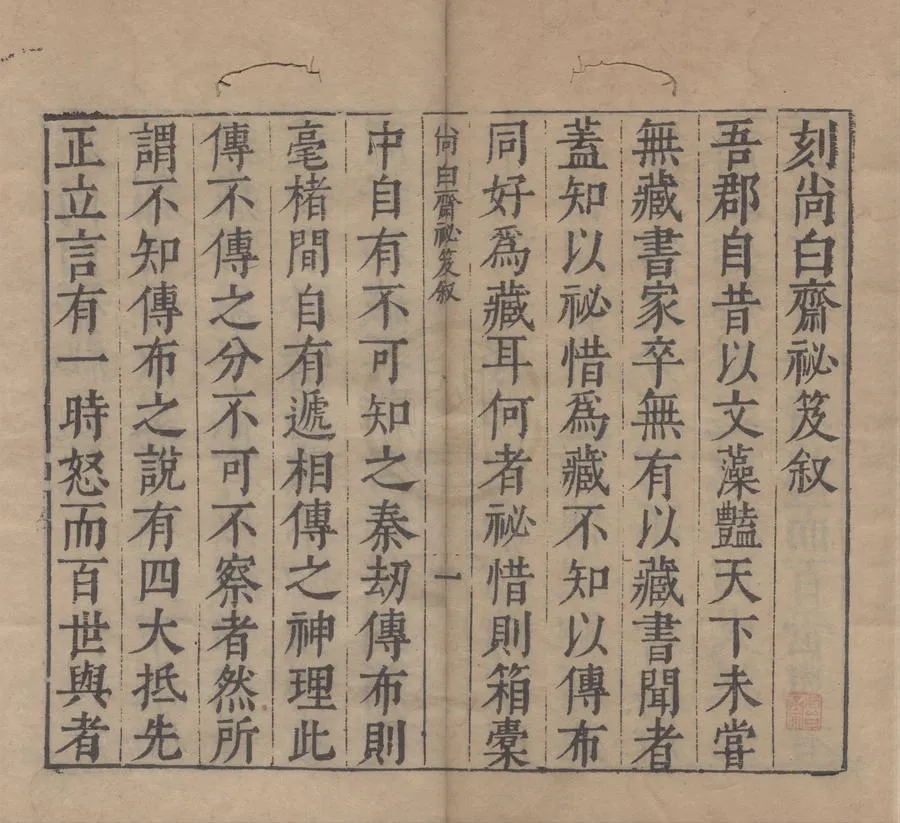 刻尚白齋祕笈叙
吾郡自昔以文藻豔天下未嘗
無藏書家卒無有以藏書聞者
蓋知以祕惜爲藏不知以傳布
同好爲藏耳何者祕惜則箱橐
尚白齋祕笈叙
一
中自有不可知之秦劫傳布則
毫楮間自有遞相傳之神理此
傳不傳之分不可不察者然所
謂不知傳布之說有四大抵先
正立言有一時怒而百世與者